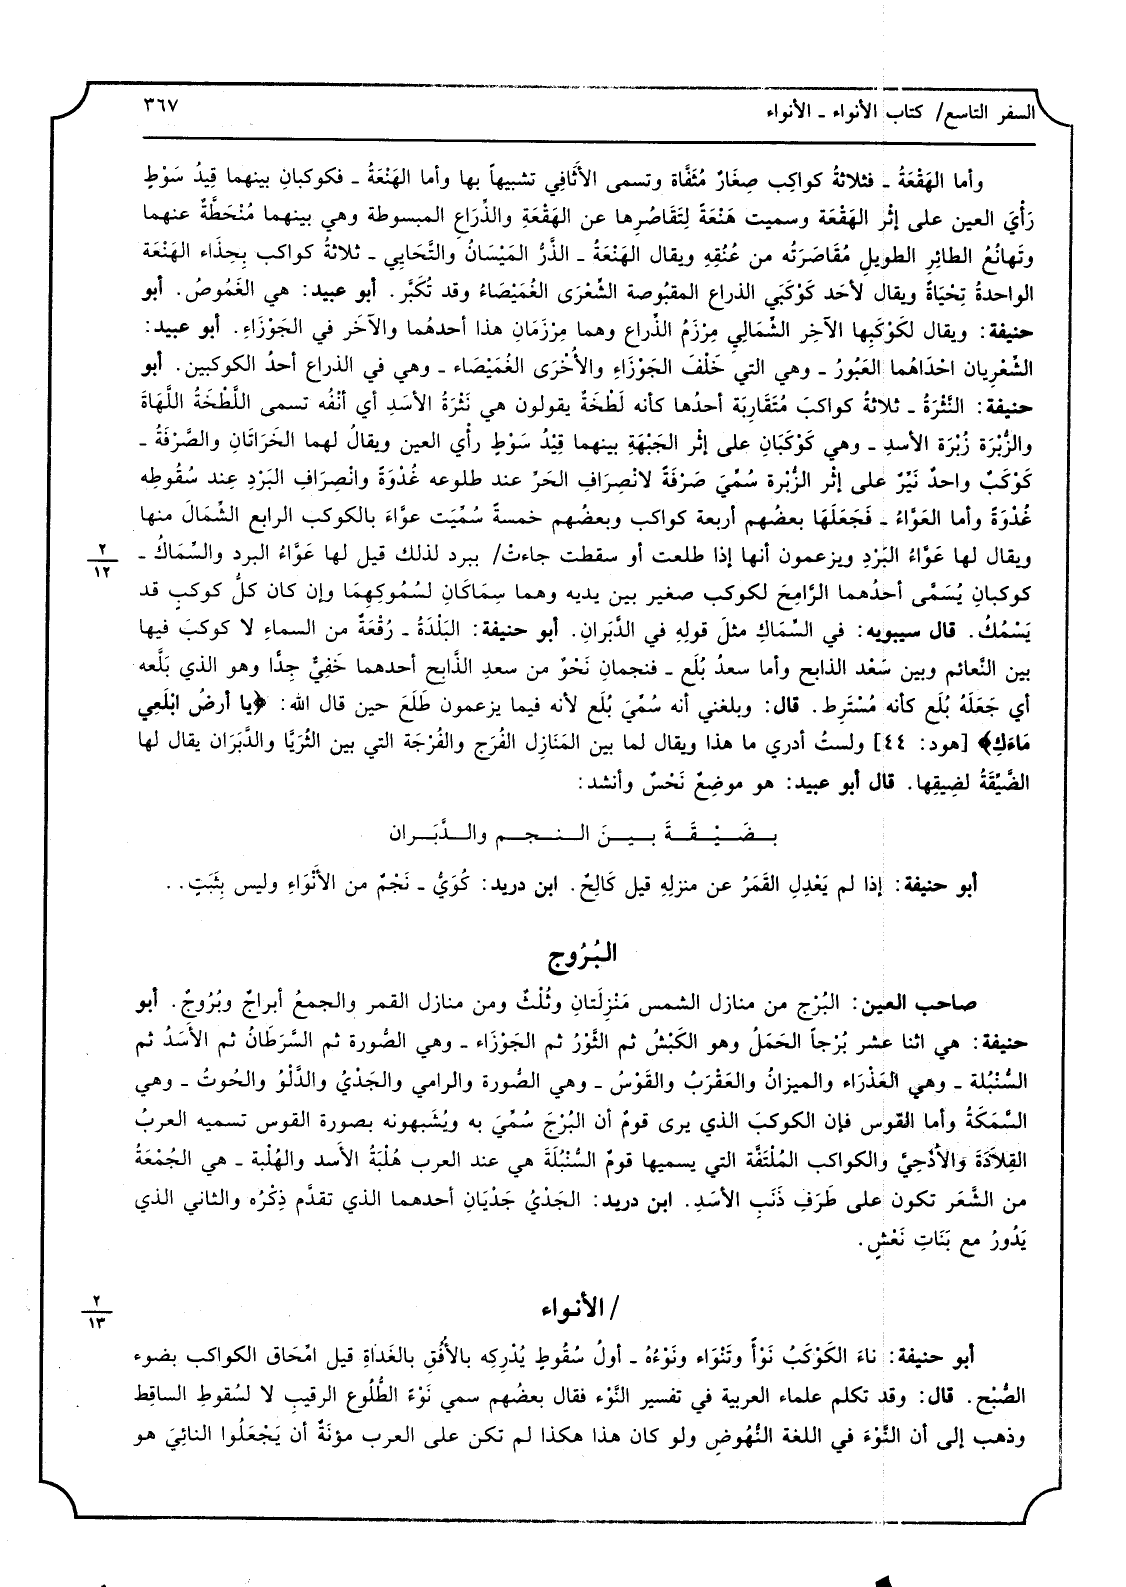 السفر التاسع/ كتاب الأنواء ـ الأنواء
٣٦٧
وأما الهَقْعَةُ ـ فثلاثةُ كواكِب صِغَارٌ مُثَفَّاة وتسمى الأَثَافِي تشبيهاً بها وأما الهَنْعَةُ ـ فكوكبانِ بينهما قِيدُ سَوْطٍ
رَأْيَ العين على إثْر الهَقْعَة وسميت هَنْعَةً لِتَقَاصُرِها عن الهَقْعَةِ والذِّرَاعِ المبسوطة وهي بينهما مُنْحَطَّةٌ عنهما
وتَهانُعُ الطائِرِ الطويلِ مُقَاصَرَتُه من عُنُقِهِ ويقال الهَنْعَةُ ـ الذَّرُّ المَيْسَانُ والتَّحَايِي ـ ثلاثةُ كواكب بِحِذَاء الهَنْعَة
الواحدةُ تِحْيَاةٌ ويقال لأحَد كَوْكَبَي الذراع المقبُوصة الشِّعْرَى الغُمَيْصَاءُ وقد تُكَبَّر. أبو عبيد: هي الغَمُوصُ. أبو
حنيفة: ويقال لكَوْكَبِها الآخِر الشِّمَالي مِرْزَمُ الذِّراع وهما مِرْزَمَانِ هذا أحدهُما والآخَر في الجَوْزَاءِ. أبو عبيد:
الشِّعْرِيان احْدَاهُما العَبُورُ ـ وهي التي خَلْفَ الجَوْزَاءِ والأُخْرَى الغُمَيْصَاء ـ وهي في الذراع أحدُ الكوكبين. أبو
حنيفة: النَّثْرَةُ ـ ثلاثةُ كواكبَ مُتَقَارِبَة أحدُها كأنه لَطْخَةٌ يقولون هي نَثْرَةُ الأسَدِ أي أنْفُه تسمى اللَّطْخَةُ اللَّهَاةَ
والزُّبْرَة زُبْرَة الأسدِ ـ وهي كَوْكَبَانِ على إثْر الجَبْهَةِ بينهما قِيْدُ سَوْطٍ رأْي العين ويقالُ لهما الخَرَاتَانِ والصَّرْفَةُ ـ
كَوْكَبٌ واحدٌ نَيِّرٌ على إثْر الزُّبْرة سُمِّيَ صَرْفَةً لانْصِرَافِ الحَرِّ عند طلوعه غُدْوَةً وانْصِرَافِ البَرْدِ عِند سُقُوطِه
غُدْوَةً وأما العَوَّاءُ ـ فَجَعَلَهَا بعضُهم أربعة كواكب وبعضُهم خمسةً سُمِّيَت عوَّاءَ بالكوكب الرابع الشَّمَالَ منها
ويقال لها عَوَّاءُ البَرْدِ ويزعمون أنها إذا طلعت أو سقطت جاءتْ/ ببرد لذلك قيل لها عَوَّاءُ البرد والسِّمَاكُ ـ
٢
١٢
كوكبانِ يُسَمَّى أحدُهما الرَّامِحَ لكوكب صغير بين يديه وهما سِمَاكَانِ لسُمُوكِهِمَا وإن كان كلُّ كوكبٍ قد
يَسْمُكُ. قال سيبويه: في السِّمَاكِ مثلَ قولِهِ في الدَّبَرانِ. أبو حنيفة: البَلْدَةُ ـ رُقْعَةٌ من السماءِ لا كوكبَ فيها
بين النَّعائم وبين سَعْد الذابح وأما سعدُ بُلَعٍ ـ فنجمانِ نَحْوٌ من سعدِ الذَّابِحِ أحدهما خَفِيٌّ جِدًّا وهو الذي بَلَّعه
أي جَعَلَهُ بُلَع كأنه مُسْتَرِط. قال: وبلغني أنه سُمِّيَ بُلَعِ لأنه فيما يزعمون طَلَعَ حين قال الله: ﴿يا أرضُ ابْلَعِي
مَاءَكِ﴾ [هود: ٤٤] ولستُ أدري ما هذا ويقال لما بين المَنَازِل الفُرَج والفُرْجَة التي بين الثُرَيَّا والدَّبَرَان يقال لها
الضَّيِّقَةُ لضِيقِها. قال أبو عبيد: هو موضِعٌ نَحْسٌ وأنشد:
بـضَيْـقَـةَ بـيـنَ الـنـجـم والـدَّبَـران
أبو حنيفة: إذا لم يَعْدِلِ القَمَرُ عن منزلِهِ قيل كَالِحٌ. ابن دريد: كُوَيٌّ ـ نَجْمٌ من الأَنْوَاءِ وليس بِثَبَتٍ. .
البُرُوج
صاحب العين: البُرْج من منازل الشمس مَنْزِلَتانِ وثُلْثٌ ومن منازل القمر والجمعُ أبراجٌ وبُرُوجٌ. أبو
حنيفة: هي اثنا عشر بُرْجاً الحَمَلُ وهو الكَبْشُ ثم الثَّوْرُ ثم الجَوْزَاء ـ وهي الصُّورة ثم السَّرَطَانُ ثم الأَسَدُ ثم
السُّنْبُلة ـ وهي العَذْرَاء والميزانُ والعَقْرَبُ والقَوْسُ ـ وهي الصُّورة والرامي والجَدْيُ والدَّلْوُ والحُوتُ ـ وهي
السَّمَكَةُ وأما القوس فإن الكوكبَ الذي يرى قومٌ أن البُرْجَ سُمِّيَ به ويُشَبهونه بصورة القوس تسميه العربُ
القِلاَدَةَ وَالأُدْحِيَّ والكواكب المُلْتَفَّة التي يسميها قومٌ السُّنْبُلَةَ هي عند العرب هُلْبَةُ الأسد والهُلْبة ـ هي الجُمْعَةُ
من الشَّعَر تكون على طَرَفِ ذَنَبِ الأسَدِ. ابن دريد: الجَدْيُ جَدْيَانِ أحدهما الذي تقدَّم ذِكْرُه والثاني الذي
يَدُورُ مع بَنَاتِ نَعْشٍ.
/ الأنواء
٢
١٣
أبو حنيفة: ناءَ الكَوْكَبُ نَوْأً وتَنْوَاء ونَوْءُهُ ـ أولُ سُقُوطٍ يُدْرِكه بالأُفُقِ بالغَدَاةِ قيل امِّحَاق الكواكب بضوء
الصُّبْح. قال: وقد تكلم علماء العربية في تفسير النَّوْء فقال بعضُهم سمي نَوْءَ الطُّلُوع الرقيبِ لا لسُقوطِ الساقِط
وذهب إلى أن النَّوْءَ في اللغة النُّهُوضِ ولو كان هذا هكذا لم تكن على العرب مؤنَةٌ أن يَجْعَلُوا النائِيَ هو